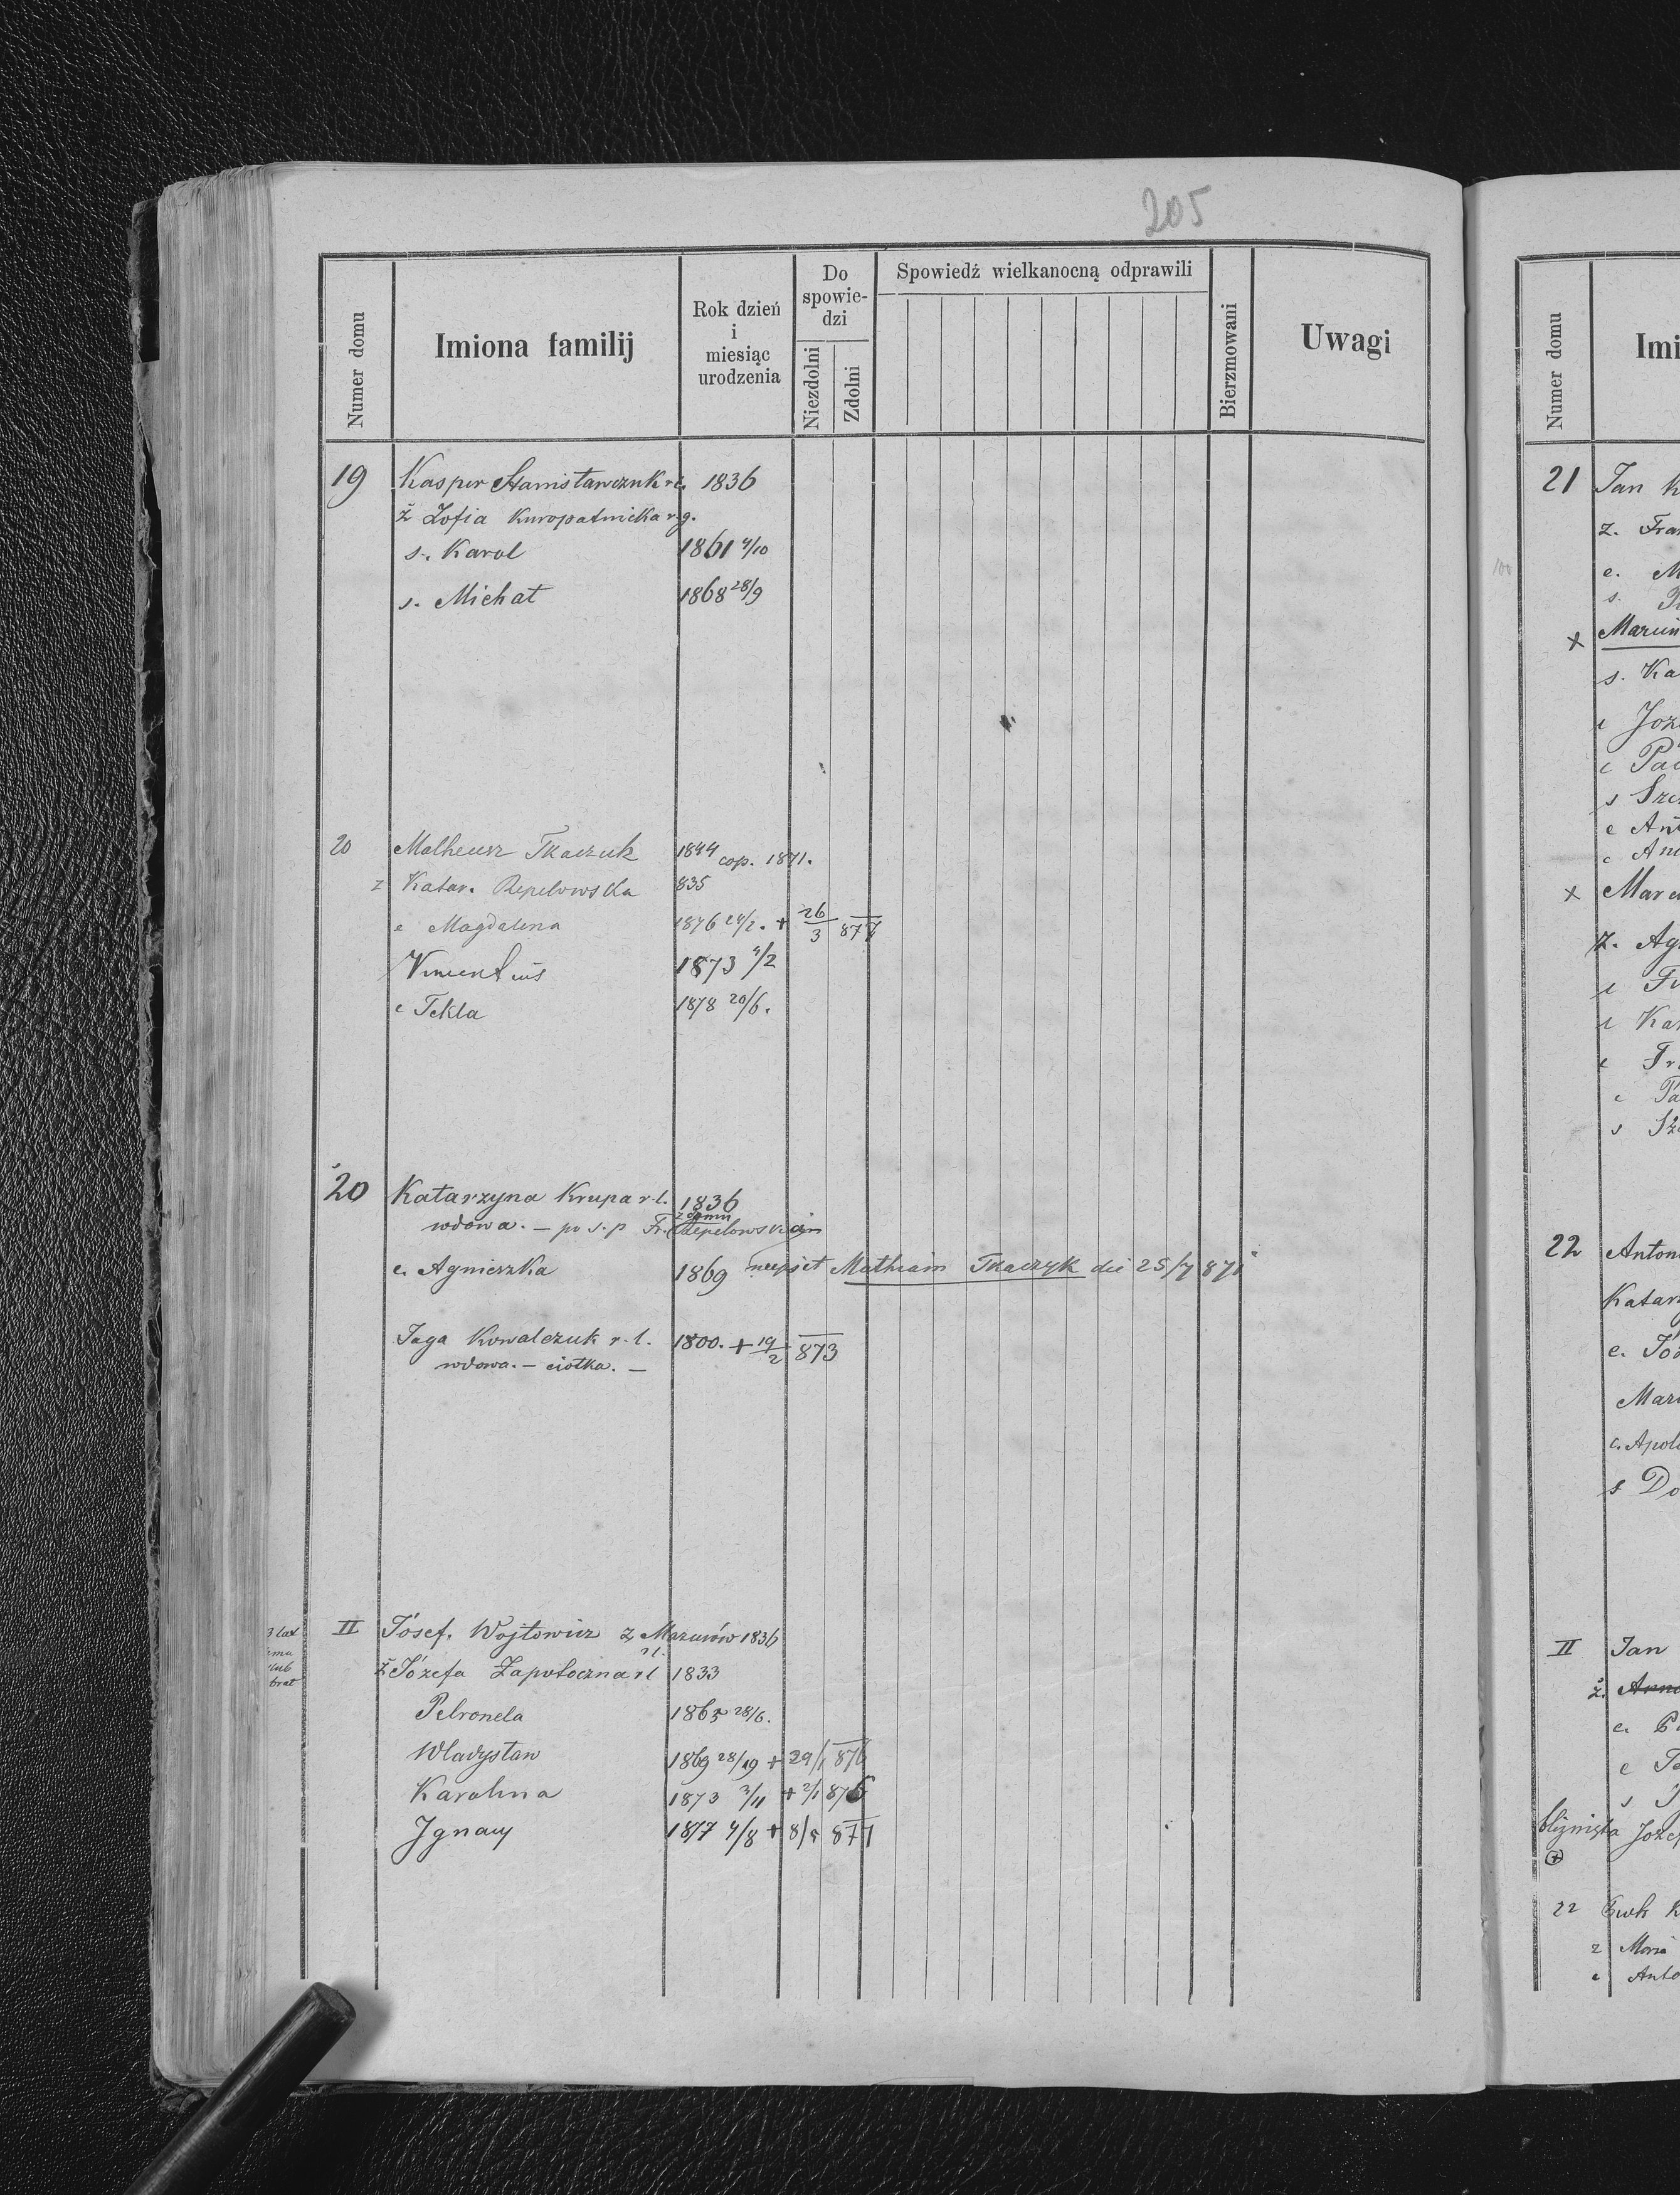 205
Numer domu
Imiona familij
Rok dzień
i
miesiąc
urodzenia
Do
spowie-
dzi
Niezdolni
Zdolni
Spowiedź wielkanocną odprawili
Bierzmowani
Uwagi
19 Kasper Stanisławczuk r. ł. 1836
ż Zofia Kuropatnicka r. g.
s. Karol 1861 4/10
s. Michał 1868 28/9
20 Matheusz Tkaczuk 1844 cop. 1871.
z Katar. Repelowska 835
c Magdalena 1876 24/2. + 26/3 877
Vincentius 1873 4/2
c Tekla 1878 20/6.
20 Katarzyna Krupa r. l. 1836
z domu
wdowa. — po ś. p Fr. Repelowskim
c. Agnieszka 1869 nupsit Mathiam Tkaczyk die 25/7 871
Jaga Kowalczuk r. l. 1800. + 19/2 873
wdowa. — ciotka. —
3 lat
temu
ślub
brał
II Józef. Wojtowicz z Mazurów 1836
r l.
ż Józefa Zapotoczna r l 1833
Petronela 1865 28/6.
Władysław 1869 28/19 + 29/1 876
Karolina 1873 3/11 + 2/1 876
Ignacy 1877 4/8 + 8/8 877
Numer domu
Imi
21 Jan K
z. Fra
c. M
s.
x Marcin
s. Ka
c Joz
c
s Szc
c Ant
c An
x Marc
z. Ag
c
c Kat
c Fr
c
s
22 Anton
Katar
c. Józ
Mar
c. Apolo
s Do
II Jan
ż. Anna
c.
c
s
bliźnięta Józef
22
z Maria
c Anto